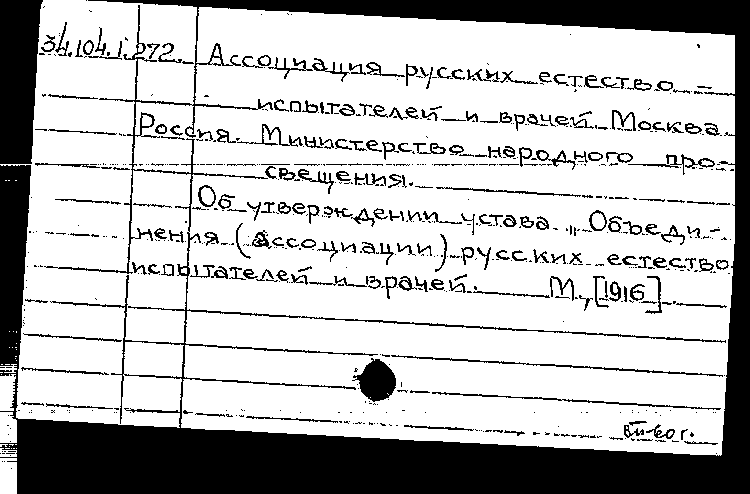 34.104.i.272. Ассоциация русских естество-
испытателей и врачей. Москва.
Россия. Министерство народного про-
свещения.
Об утверждении устава „Объеди-
нения (ассоциации) русских естество
испытателей и врачей. М., [1916]
VII-60 г.